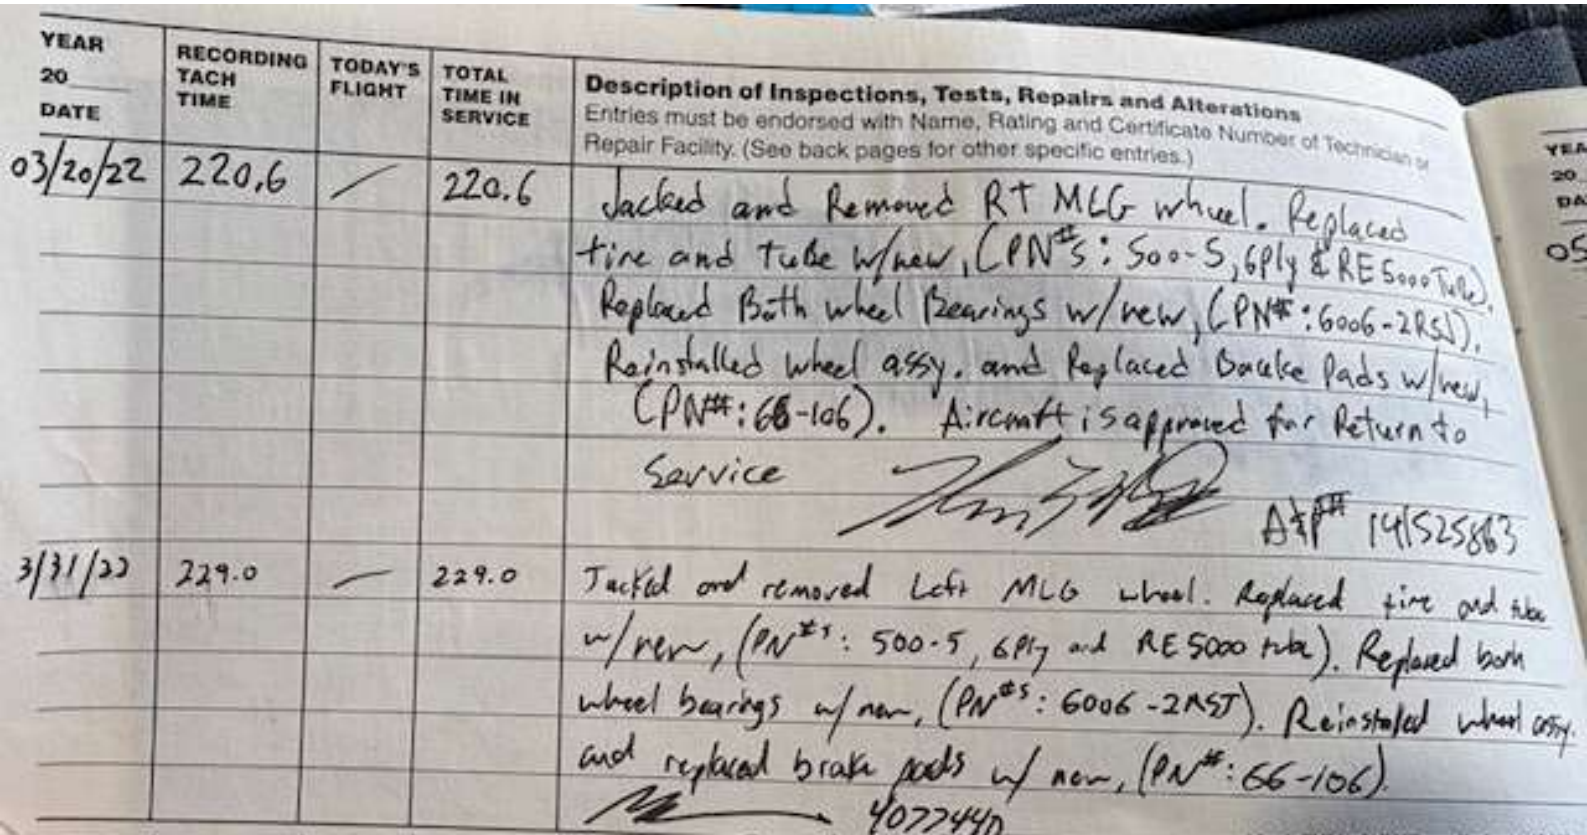 YEAR
20
DATE
RECORDING
TACH
TIME
TODAY'S
FLIGHT
TOTAL
TIME IN
SERVICE
Description of Inspections, Tests, Repairs and Alterations
Entries must be endorsed with Name, Rating and Certificate Number of Technician or
Repair Facility. (See back pages for other specific entries.)
03/20/22 220.6 / 220.6 Jacked and Removed RT MLG wheel. Replaced
tire and TuBe w/new, (PN#'s: 500-5, 6Ply & RE5000 TuBe).
Replaced Both wheel Bearings w/new, (PN#: 6006-2RSJ).
Reinstalled wheel assy. and Replaced Brake Pads w/new,
(PN#: 66-106). Aircraft is approved for Return to
Service
A&P# 141525863
3/31/22 229.0 — 229.0 Jacked and removed Left MLG wheel. Replaced tire and tube
w/new, (PN#s: 500-5, 6Ply and RE5000 tube). Replaced both
wheel bearings w/new, (PN#s: 6006-2RSJ). Reinstalled wheel assy.
and replaced brake pads w/new, (PN#: 66-106).
YEA
20
DA
05